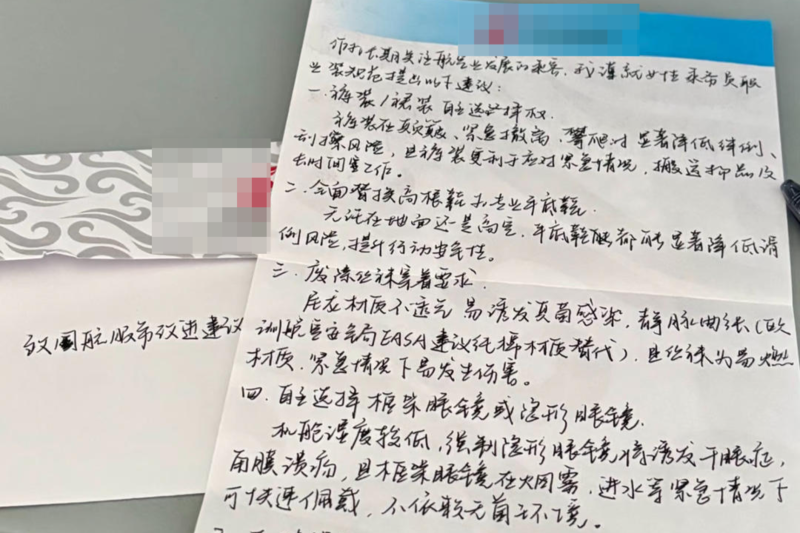 作为长期关注航空业发展的乘客，我谨就女性乘务员职
业装规范提出以下建议：
一、裤装/裙装自主选择权.
裤装在颠簸、紧急撤离、攀爬时显著降低绊倒、
刮擦风险，且裤装更利于应对紧急情况，搬运物品及
长时间工作。
二、全面替换高根鞋为专业平底鞋.
无论在地面还是高空，平底鞋都能显著降低滑
倒风险，提升行动安全性。
三、废除丝袜穿着要求.
尼龙材质不透气易诱发真菌感染，静脉曲张（欧
洲航空安全局EASA建议纯棉材质替代），且丝袜为易燃
材质，紧急情况下易发生伤害。
四、自主选择框架眼镜或隐形眼镜.
机舱湿度较低，强制隐形眼镜将诱发干眼症，
角膜溃疡，且框架眼镜在烟雾，进水等紧急情况下
可快速佩戴，不依赖无菌环境。
致国航服务改进建议